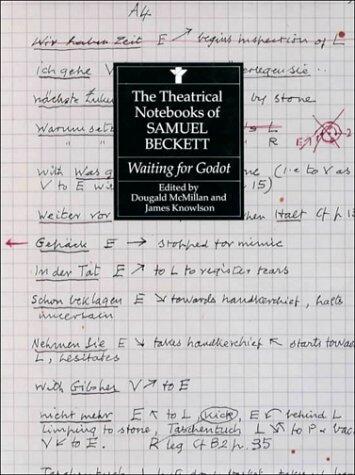 A4
Wir haben Zeit E ↗ begins inspection of L
Ich gehe V
überlegen sie..
nächste
by stone
The Theatrical
Notebooks of
SAMUEL
BECKETT
Waiting for Godot
Edited by
Dougald McMillan and
James Knowlson
Warum
L
R
E
With Was
(i.e to V as
V to E
15)
Weiter vor
Halt Cf p. 13
← Gepäck E → stopped for mimic
In der Tat E ↗ to L to register tears
Schon beklagen E ↘ towards handkerchief, halts
uncertain
Nehmen Sie E ↘ takes handkerchief ↖ starts towards
L, hesitates
With Gilbher V ↗ to E
nicht mehr E ↖ to L, kick, E ↙ behind L
limping to stone, Taschentuch L ↘ to P + bac
V ↙ to E. R leg Cf B2 p. 35